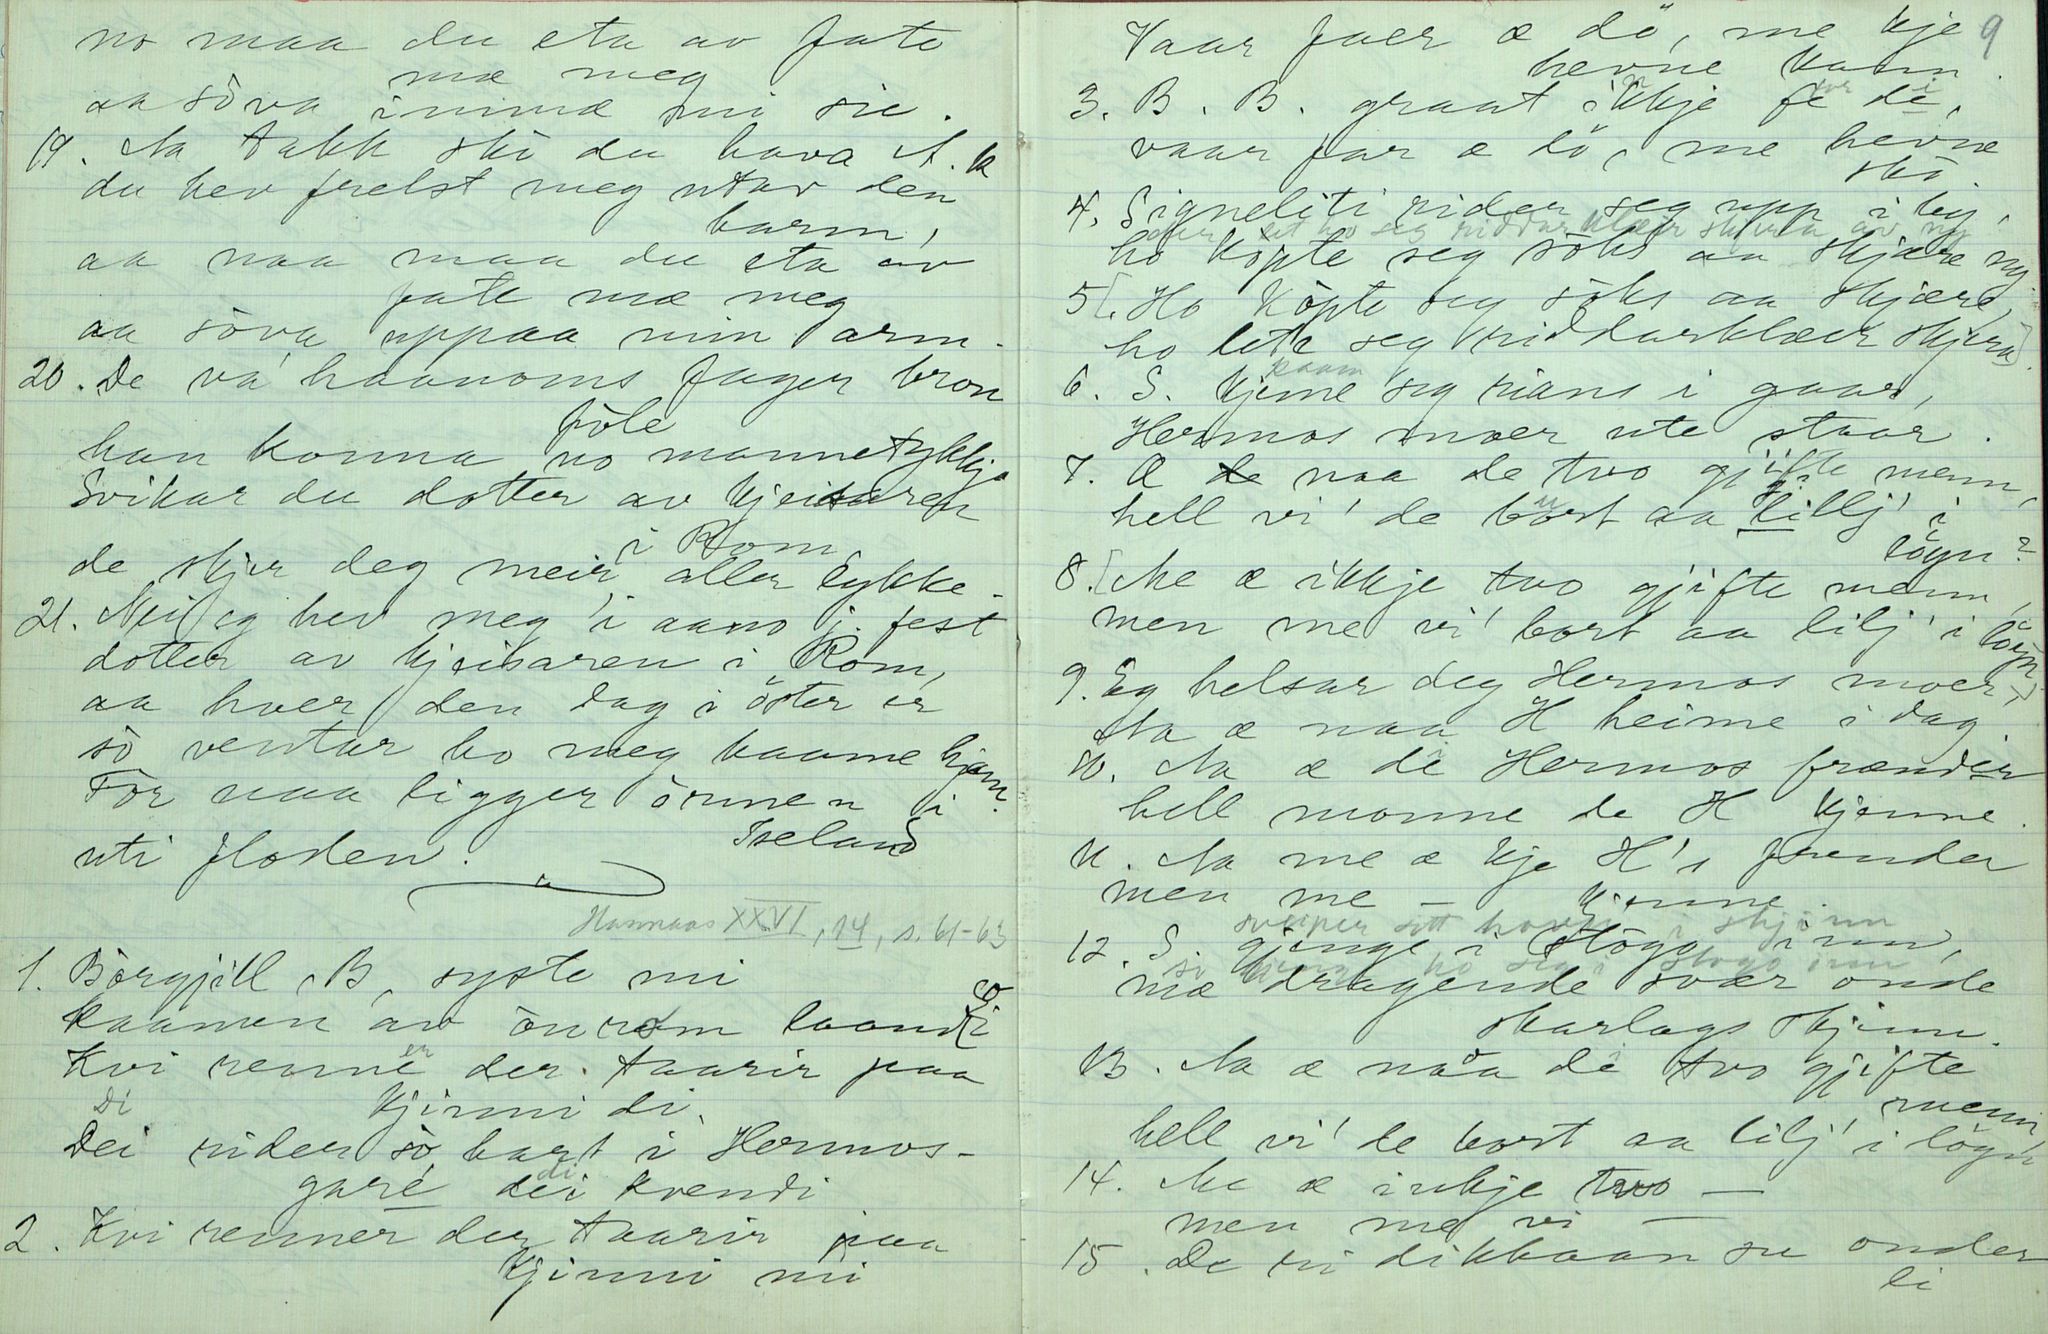 no maa du eta av fate
mæ meg
aa söva innmæ mi sie.
19. Aa takk ski du hava A. k
du hev frelst meg utav den
harm,
aa naa maa du eta av
fate mæ meg
aa söva uppaa min arm.
20. De va' haanoms fager bron
föle
han konna no mannetykkja
Svikar du dotter av kjeisaren
i Rom
de skjer deg meir aller lykke.
21. Nei eg hev meg i aano j. fest
dotter av kjeisaren i Rom,
aa hver den dag i öster er
so ventar ho meg kaame hjem.
For naa ligger ormen i
Iseland
uti floden.
Hannaas XXVI, 14, s. 61-63
1. Börgjill, B, syste mi
kaamen av önrom laandi
Kvi renne der taarir paa
er
kjinni di.
Di
Dei rider so bart i Hermos-
gare dei kvendi
di
2. Kvi renner der taarir paa
kjinni mi
9
Vaar faer æ dö, me kje
hevne kann.
3. B. B. graat ikkje fe de,
vaar far æ dö, me hevne
sko
4. Signeliti rider seg upp i by,
der let ho seg riddarklæir skjera av ny
ho köpte seg söks aa skjære ny.
5 [. Ho köpte seg söks aa skjære,
ho lete seg riddarklæir skjera].
6. S. kjeme seg rians i gaar,
kaam
Hermos moer ute staar.
7. Æ de naa de two gjifte menn,
hell vi' de bort aa lillj' i
lögn?
8. [Me æ ikkje two gjifte menn,
men me vi' bort aa lilj' i lögn]
9. Eg helsar deg Hermos moer,
Aa æ naa H heime i dag.
10. Aa æ de Hermos frænder
hell monne de H kjenne.
11. Aa me æ kje H's frender
men me — kjenne.
sveiper sitt hovu i skjinn
12. S. gjenge i stogo inn,
so gjeng ho seg i stogo inn
mæ dragende svær onde
skarlags skjinn.
13. Aa æ naa de two gjifte
menn,
hell vi' de bort aa lilj' i lögn
14. Me æ inkje two —
men me vi —
15. De ri dikkaan su onder
li